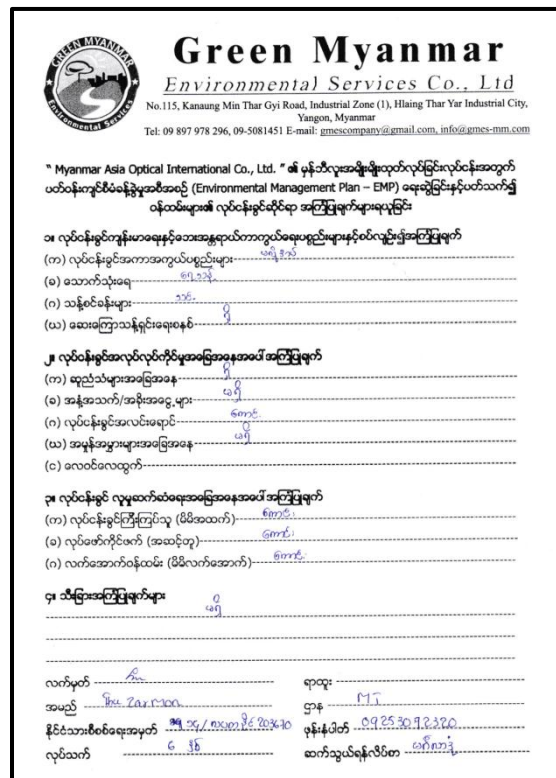 GREEN MYANMAR
Environmental Services
Green Myanmar
Environmental Services Co., Ltd
No.115, Kanaung Min Thar Gyi Road, Industrial Zone (1), Hlaing Thar Yar Industrial City,
Yangon, Myanmar
Tel: 09 897 978 296, 09-5081451 E-mail: gmescompany@gmail.com, info@gmes-mm.com
" Myanmar Asia Optical International Co., Ltd. " ၏ မှန်ဘီလူးအမျိုးမျိုးထုတ်လုပ်ခြင်းလုပ်ငန်းအတွက်
ပတ်ဝန်းကျင်စီမံခန့်ခွဲမှုအစီအစဉ် (Environmental Management Plan – EMP) ရေးဆွဲခြင်းနှင့်ပတ်သက်၍
ဝန်ထမ်းများ၏ လုပ်ငန်းခွင်ဆိုင်ရာ အကြံပြုချက်များရယူခြင်း
၁။ လုပ်ငန်းခွင်ကျန်းမာရေးနှင့်ဘေးအန္တရာယ်ကာကွယ်ရေးပစ္စည်းများနှင့်စပ်လျဉ်း၍အကြံပြုချက်
(က) လုပ်ငန်းခွင်အကာအကွယ်ပစ္စည်းများ
(ခ) သောက်သုံးရေ ရေသန့်
(ဂ) သန့်စင်ခန်းများ သင့်
(ဃ) ဆေးကြောသန့်ရှင်းရေးစနစ် ရှိ
၂။ လုပ်ငန်းခွင်အလုပ်လုပ်ကိုင်မှုအခြေအနေအပေါ် အကြံပြုချက်
(က) ဆူညံသံများအခြေအနေ ရှိ
(ခ) အနံ့အသက်/အခိုးအငွေ့များ မရှိ
(ဂ) လုပ်ငန်းခွင်အလင်းရောင် ကောင်း
(ဃ) အမှုန်အမွှားများအခြေအနေ မရှိ
(င) လေဝင်လေထွက်
၃။ လုပ်ငန်းခွင် လူမှုဆက်ဆံရေးအခြေအနေအပေါ် အကြံပြုချက်
(က) လုပ်ငန်းခွင်ကြီးကြပ်သူ (မိမိအထက်) ကောင်း
(ခ) လုပ်ဖော်ကိုင်ဖက် (အဆင့်တူ) ကောင်း
(ဂ) လက်အောက်ဝန်ထမ်း (မိမိလက်အောက်) ကောင်း
၄။ သီးခြားအကြံပြုချက်များ
မရှိ
လက်မှတ် ရာထူး
အမည် Thu Zar Mon ဌာန MT
နိုင်ငံသားစိစစ်ရေးအမှတ် 203670 ဖုန်းနံပါတ် 09253092320
လုပ်သက် ၆ နှစ် ဆက်သွယ်ရန်လိပ်စာ မင်္ဂလာဒုံ